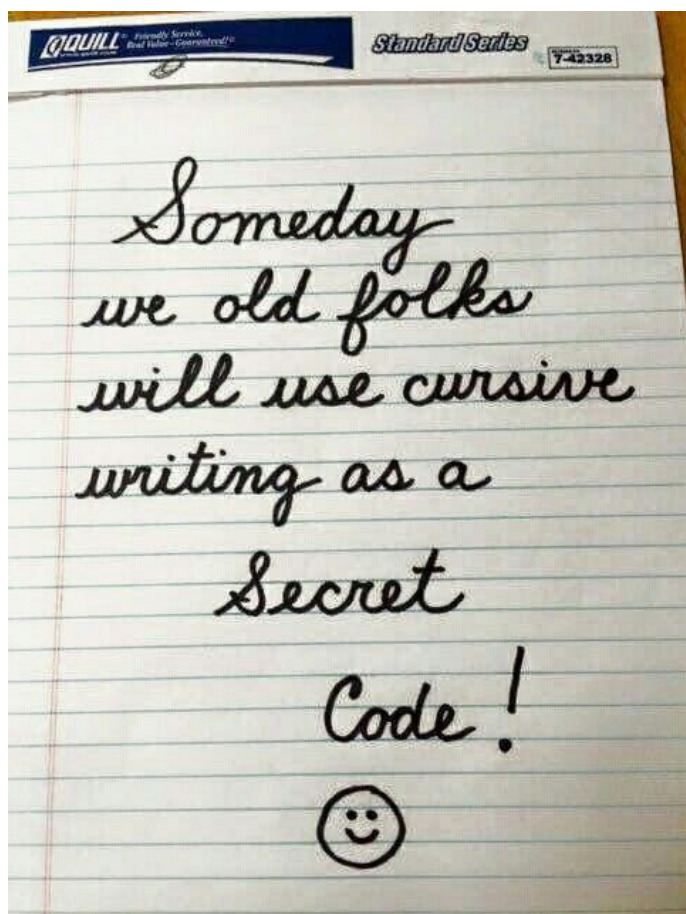 QUILL Friendly Service,
Real Value-Guaranteed!
Standard Series
7-42328
Someday
we old folks
will use cursive
writing as a
Secret
Code!